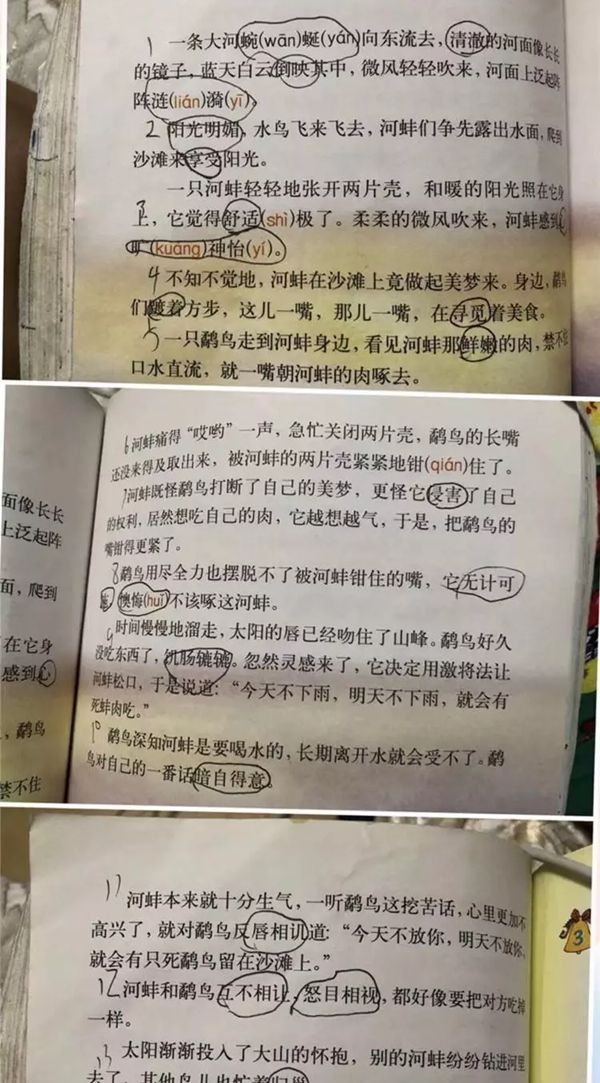 1 一条大河蜿(wān)蜒(yán)向东流去，清澈的河面像长长
的镜子，蓝天白云倒映其中，微风轻轻吹来，河面上泛起阵
阵涟(lián)漪(yī)。
2 阳光明媚，水鸟飞来飞去，河蚌们争先露出水面，爬到
沙滩来享受阳光。
3 一只河蚌轻轻地张开两片壳，和暖的阳光照在它身
上，它觉得舒适(shì)极了。柔柔的微风吹来，河蚌感到心
旷(kuàng)神怡(yí)。
4 不知不觉地，河蚌在沙滩上竟做起美梦来。身边，鹬鸟
们踱着方步，这儿一嘴，那儿一嘴，在寻觅着美食。
5 一只鹬鸟走到河蚌身边，看见河蚌那鲜嫩的肉，禁不住
口水直流，就一嘴朝河蚌的肉啄去。
面像长长
上泛起阵
面，爬到
在它身
感到心
，鹬鸟
禁不住
6 河蚌痛得“哎哟”一声，急忙关闭两片壳，鹬鸟的长嘴
还没来得及取出来，被河蚌的两片壳紧紧地钳(qián)住了。
7 河蚌既怪鹬鸟打断了自己的美梦，更怪它侵害了自己
的权利，居然想吃自己的肉，它越想越气，于是，把鹬鸟的
嘴钳得更紧了。
8 鹬鸟用尽全力也摆脱不了被河蚌钳住的嘴，它无计可
施，懊悔(huǐ)不该啄这河蚌。
9 时间慢慢地溜走，太阳的唇已经吻住了山峰。鹬鸟好久
没吃东西了，饥肠辘辘。忽然灵感来了，它决定用激将法让
河蚌松口，于是说道：“今天不下雨，明天不下雨，就会有
死蚌肉吃。”
10 鹬鸟深知河蚌是要喝水的，长期离开水就会受不了。鹬
鸟对自己的一番话暗自得意。
11 河蚌本来就十分生气，一听鹬鸟这挖苦话，心里更加不
高兴了，就对鹬鸟反唇相讥道：“今天不放你，明天不放你，
就会有只死鹬鸟留在沙滩上。”
12 河蚌和鹬鸟互不相让，怒目相视，都好像要把对方吃掉
一样。
13 太阳渐渐投入了大山的怀抱，别的河蚌纷纷钻进河里
去了，其他鸟儿也忙着归巢
3